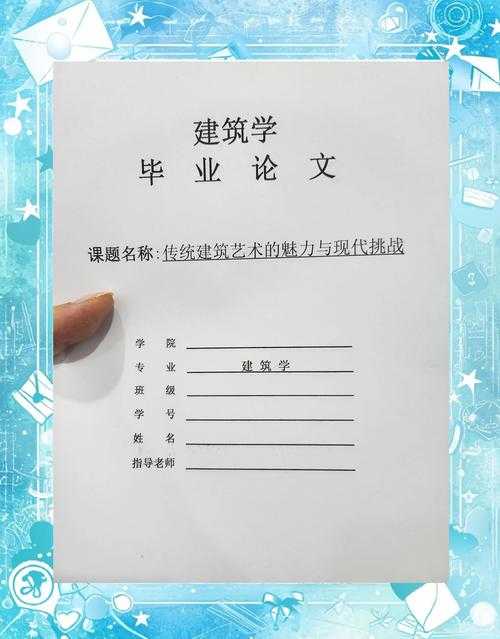 建筑学
毕 业 论 文
课题名称:传统建筑艺术的魅力与现代挑战
学 院
专 业 建 筑 学
班 级
学 号
姓 名
指导老师